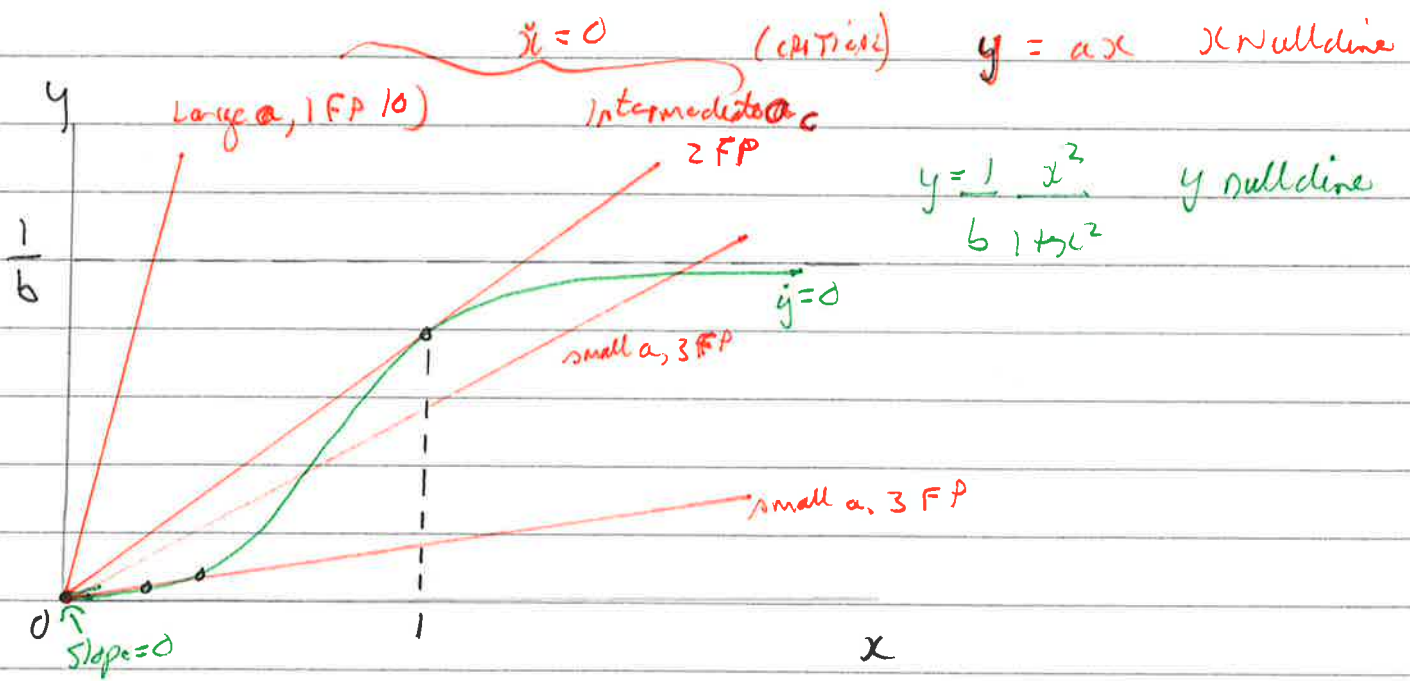 ẋ = 0 (CRITICAL) y = ax x Nullcline
y
Large a, 1 FP (0) Intermediate a c
2 FP
y = 1/b x²/(1+x²) y nullcline
1/b
ẏ=0
small a, 3 FP
small a, 3 FP
0 1 x
slope=0